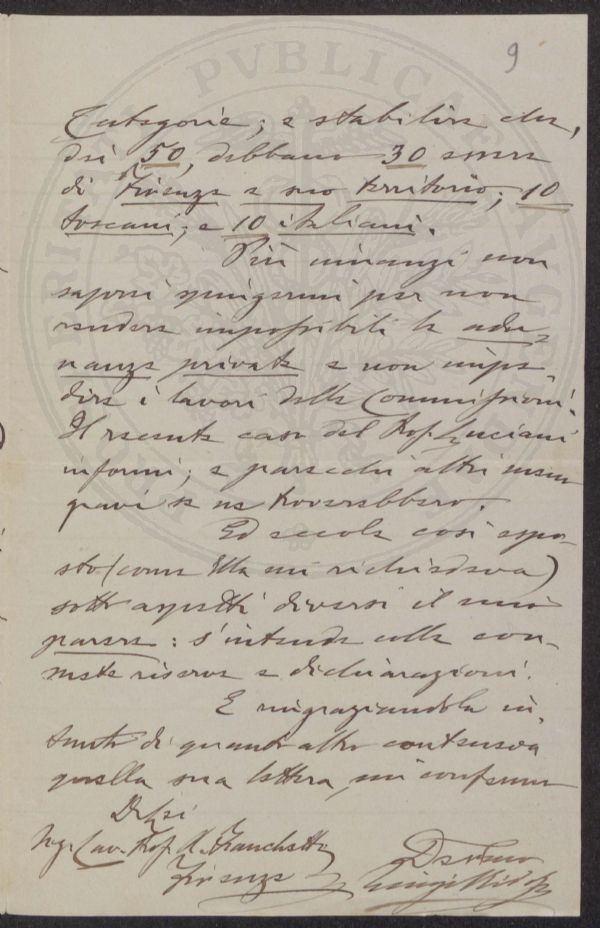 9
Categorie; e stabilire che,
dei 50, debbano 30 essere
di Firenze e suo territorio; 10
toscani; e 10 italiani.
Più innanzi non
saprei spingermi per non
rendere impossibili le adu-
nanze private e non impe-
dire i lavori delle Commissioni.
Il recente caso del Prof. Luciani
informi; e parecchi altri men
gravi se ne troverebbero.
Ed eccole così espo-
sto (come Ella mi richiedeva)
sotto aspetti diversi il mio
parere: s'intende colle con-
suete riserve e dichiarazioni.
E ringraziandola in-
tanto di quant'altro conteneva
quella sua lettera, mi confermo
Di Lei
Sigr. Cav. Prof. A. Franchetti
Firenze
Devmo
Luigi Ridolfi